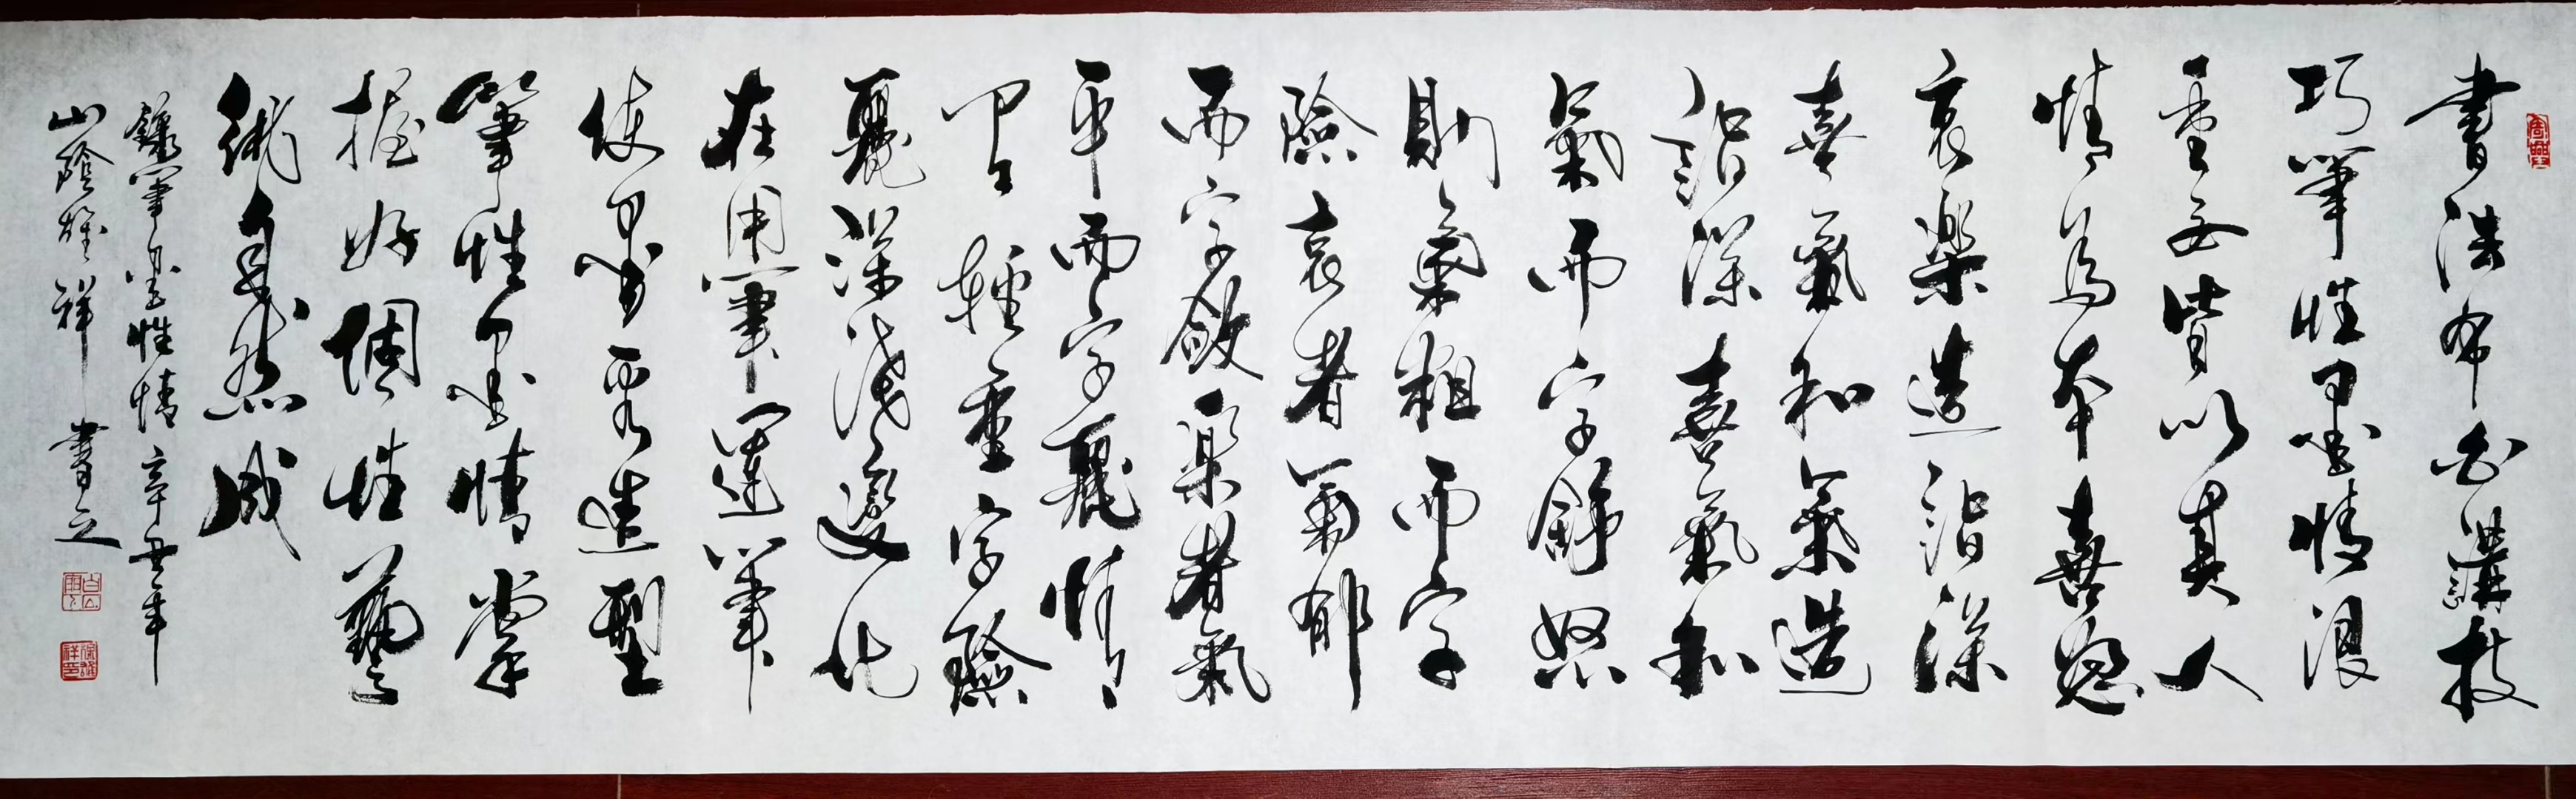 書法布白講技
巧筆性墨情濃
重妄皆以其人
情為本喜怒
哀樂造詣深
喜氣和氣造
詣深喜氣和
氣而字舒怒
則氣粗而字
險哀者氣郁
而字斂樂者氣
平而字麗情
有輕重字險
麗深淺變化
在用筆運筆
使墨墨造型
筆性墨情掌
握好調性藝
術自然成
錄筆墨性情辛丑年
山陰雄祥書之